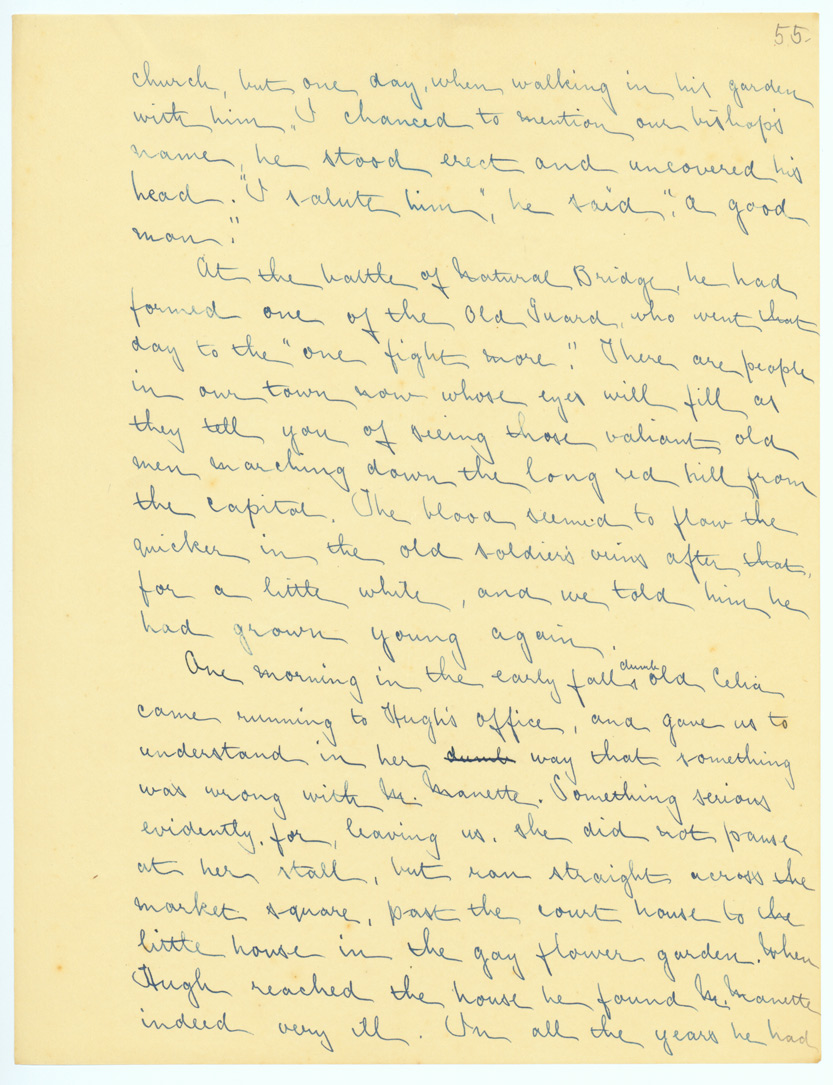 55.
church, but one day, when walking in his garden
with him, I chanced to mention our bishop's
name, he stood erect and uncovered his
head. "I salute him", he said, "a good
man."
At the battle of Natural Bridge, he had
formed one of the Old Guard, who went that
day to the "one fight more." There are people
in our town now whose eyes will fill as
they tell you of seeing those valiant old
men marching down the long red hill from
the capitol. The blood seemed to flow the
quicker in the old soldier's veins after that,
for a little while, and we told him he
had grown young again.
One morning in the early fall, dumb old Celia
came running to Hugh's office, and gave us to
understand in her dumb way that something
was wrong with M. Manette. Something serious
evidently, for, leaving us, she did not pause
at her stall, but ran straight across the
market square, past the court house to the
little house in the gay flower garden. When
Hugh reached the house he found M. Manette
indeed very ill. In all the years he had